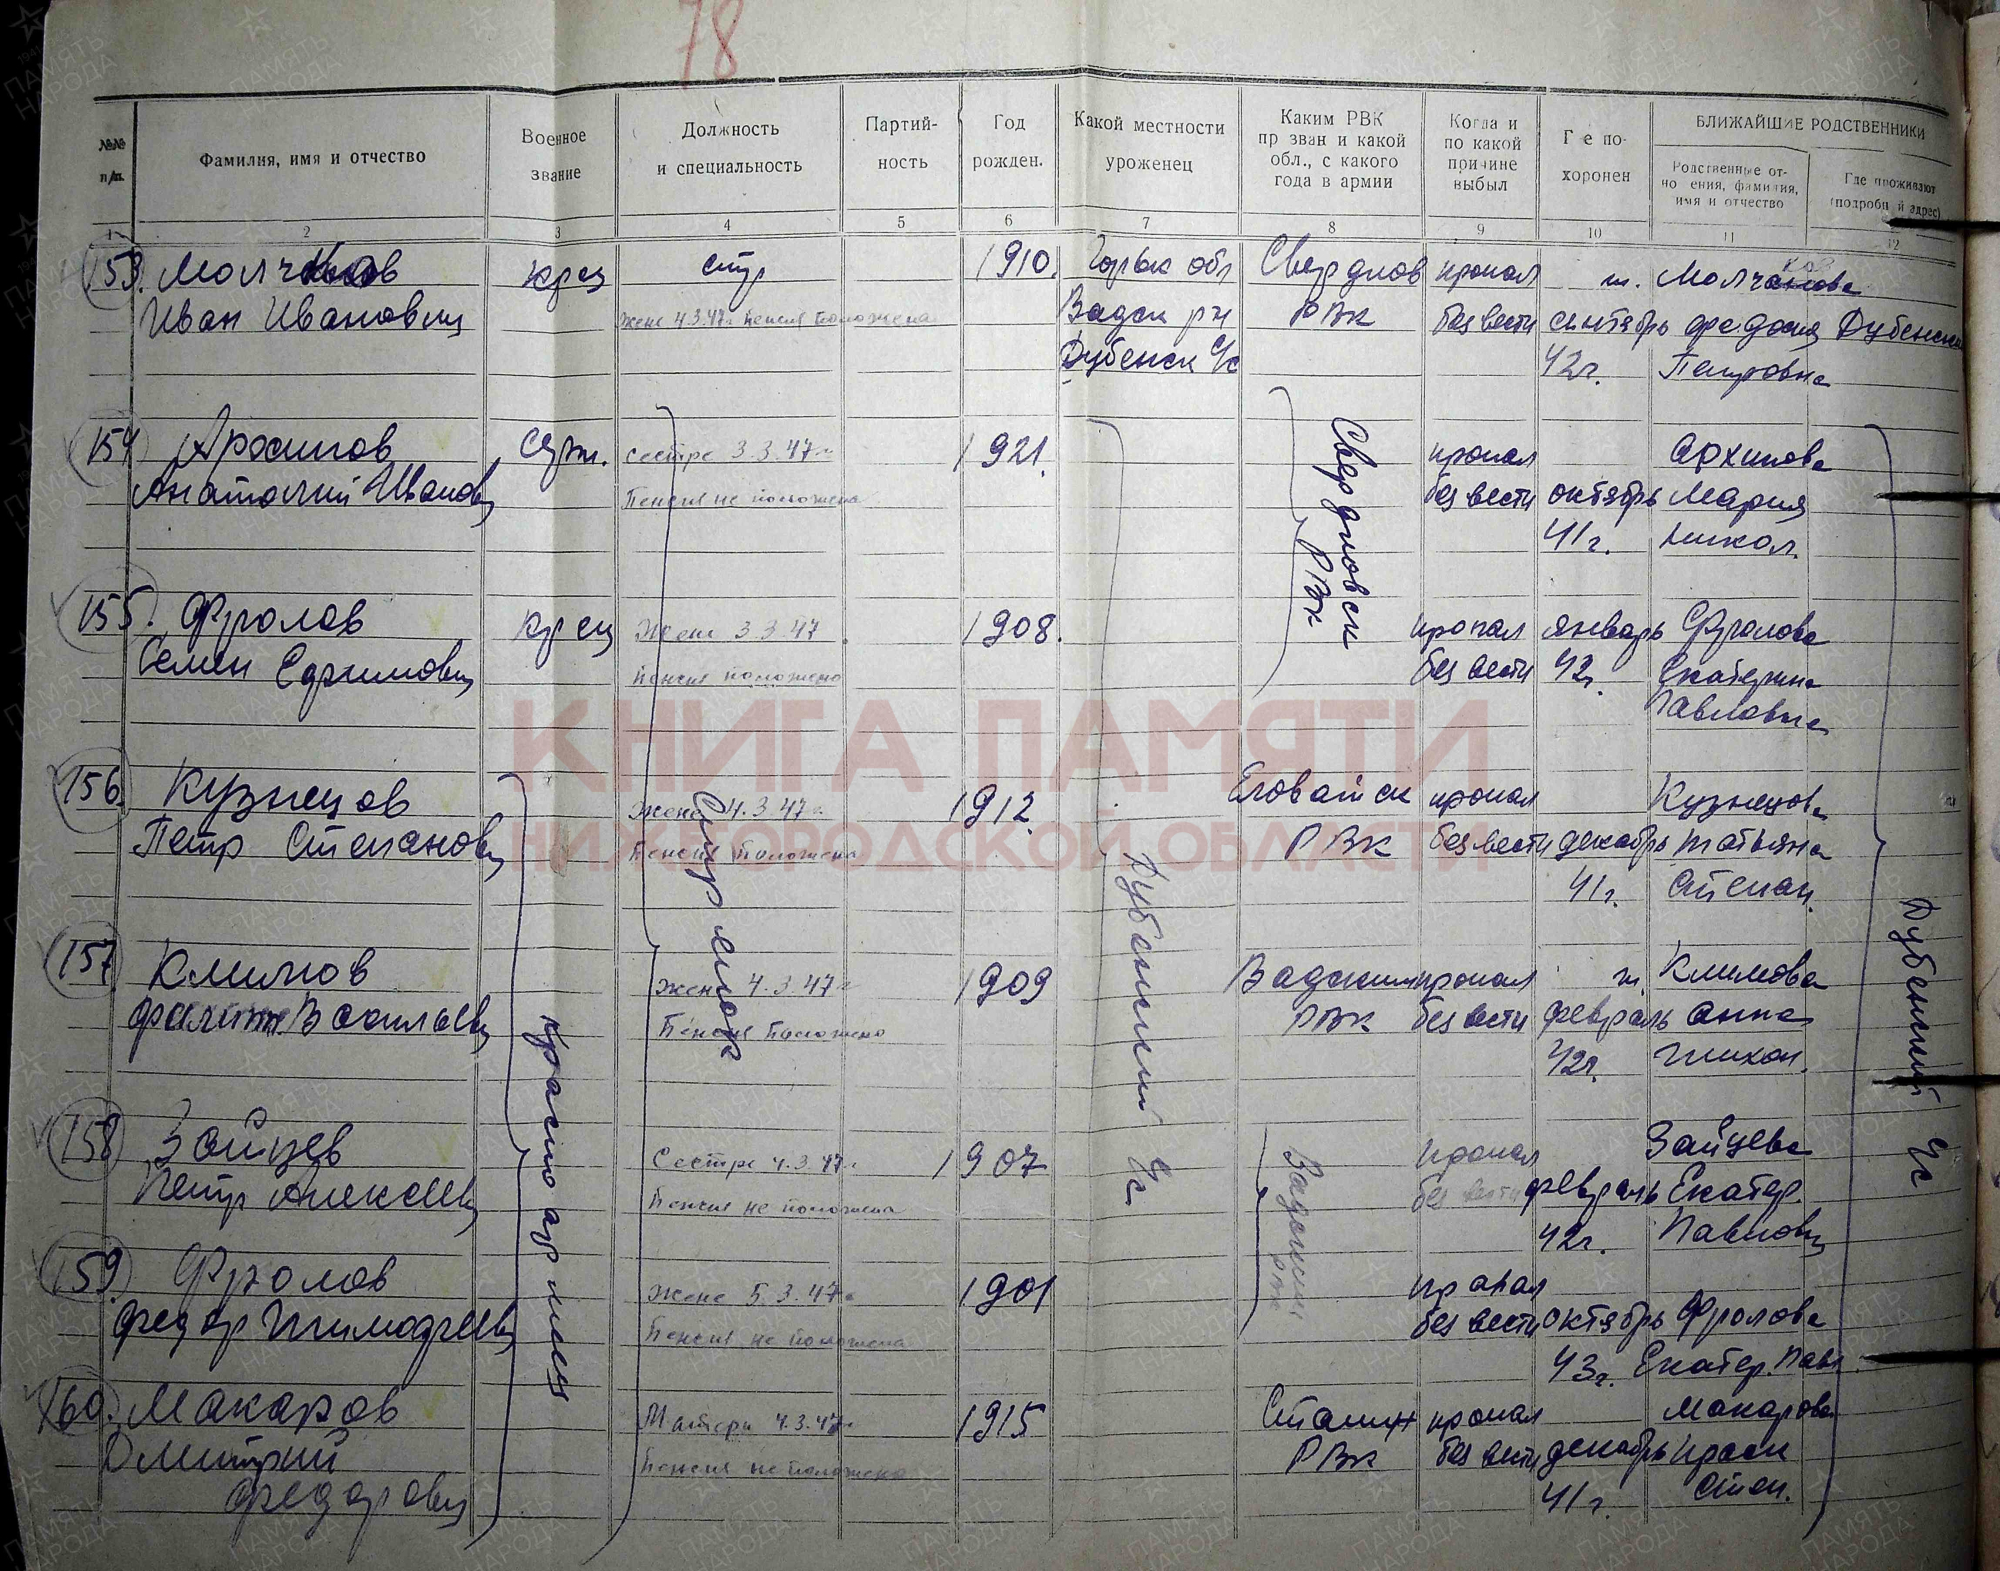 78
№№ п/п.
Фамилия, имя и отчество
Военное звание
Должность и специальность
Партий- ность
Год рожден.
Какой местности уроженец
Каким РВК пр зван и какой обл., с какого года в армии
Когда и по какой причине выбыл
Г е по- хоронен
БЛИЖАЙШИЕ РОДСТВЕННИКИ
Родственные от- но ения, фамилия, имя и отчество
Где проживают (подробн й адрес)
1 2 3 4 5 6 7 8 9 10 11 12
153. крец стр 1910. Горьк обл Свердлов пропал ж.
Иван Иванович Жене 4.3.47г. Пенсия положена Вадск рн РВК без вести сентябрь Федосия Дубенский
Дубенск с/с 42г. Петровна
154 Архипов серж. сестре 3.3.47г. 1921. пропал Архипова
Анатолий Иванов Пенсия не положена без вести октябрь Мария
41г. Никол.
Свердловск РВК
155. Фролов крец Жене 3.3.47 1908. пропал январь Фролова
Семен Ефимович Пенсия положено без вести 42г. Екатерина
Павловна
156. Кузнецов Жене 4.3.47г. 1912. РВК пропал Кузнецова
Петр Степанович Пенсия положена без вести декабрь Татьяна
41г. Степан.
Стр
Дубенский с/с
Дубенский с/с
157 Климов Жене 4.3.47г 1909 Вадским пропал ж. Климова
Васильев Пенсия положено РВК без вести февраль Анна
42г. Тихон.
красноармеец
158 Зайцев Сестре 4.3.47г. 1907 пропал Зайцева
Петр Алексеев Пенсия не положена без вести февраль Екатер.
42г. Павлов
Вадским РВК
159. Фролов Жене 5.3.47г 1901 пропал
Федор Тимофеев Пенсия не положена без вести октябрь Фролова
43г. Екатер. Павл
160. Макаров Матери 4.3.47г 1915 Сталин пропал Макарова
Дмитрий Пенсия не положено РВК без вести декабрь
Федорович 41г. Степ.
КНИГА ПАМЯТИ
НИЖЕГОРОДСКОЙ ОБЛАСТИ
ПАМЯТЬ НАРОДА